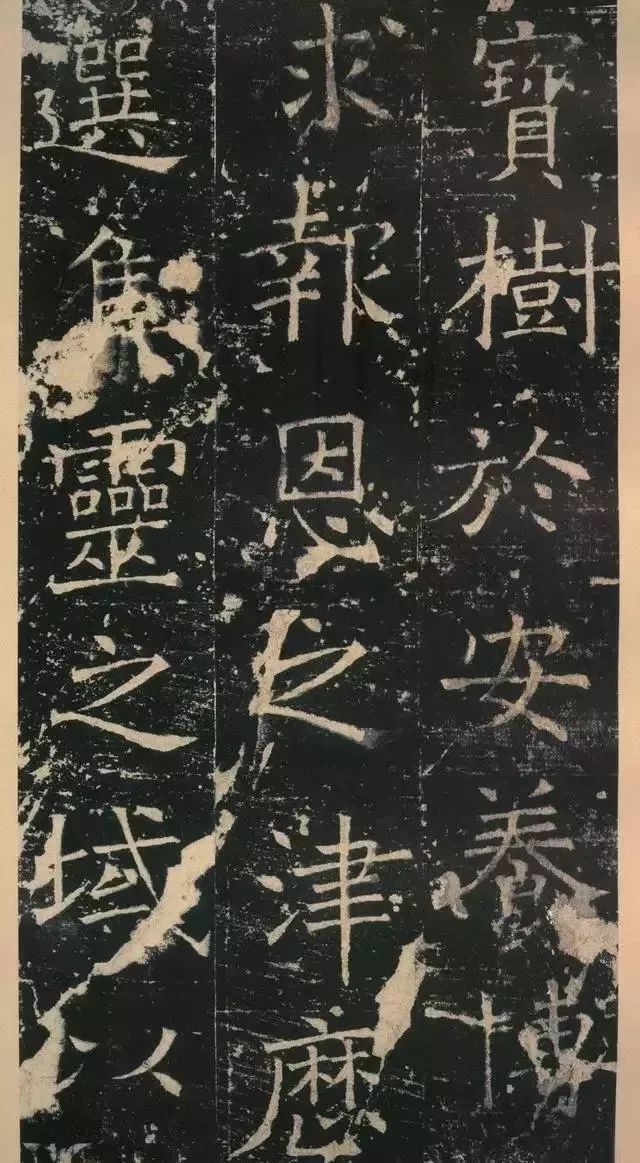 寶樹於安養博
求報恩之津麿
選集靈之域以